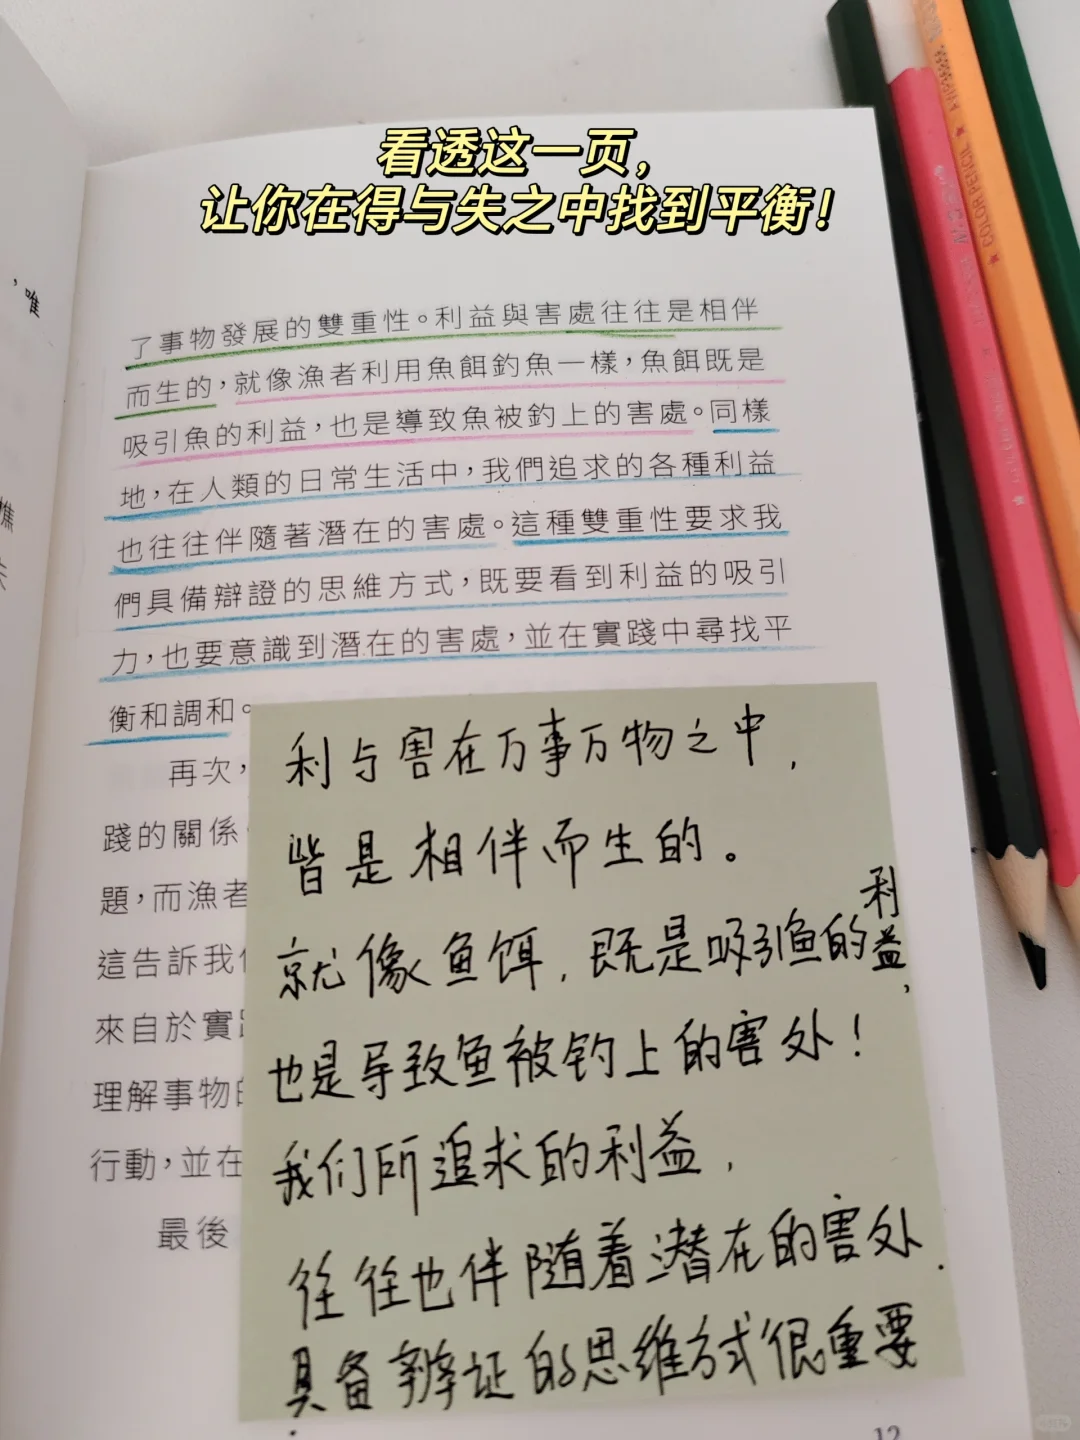 看透这一页，
让你在得与失之中找到平衡！
，唯
樵
了事物發展的雙重性。利益與害處往往是相伴
而生的，就像漁者利用魚餌釣魚一樣，魚餌既是
吸引魚的利益，也是導致魚被釣上的害處。同樣
地，在人類的日常生活中，我們追求的各種利益
也往往伴隨著潛在的害處。這種雙重性要求我
們具備辯證的思維方式，既要看到利益的吸引
力，也要意識到潛在的害處，並在實踐中尋找平
衡和調和。
再次，
踐的關係
題，而漁者
這告訴我
來自於實
理解事物
行動，並在
最後
利与害在万事万物之中，
皆是相伴而生的。
就像鱼饵，既是吸引鱼的利益，
也是导致鱼被钓上的害处！
我们所追求的利益，
往往也伴随着潜在的害处.
具备辨证的思维方式很重要.
12
COLOR PENCIL